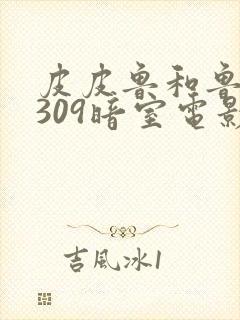 皮皮魯和魯
309暗室電影
吉風冰1